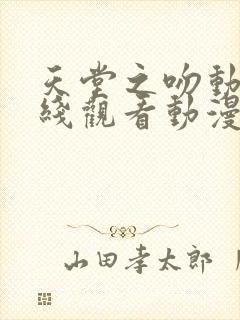 天堂之吻動
綫觀看動漫
山田孝太郎